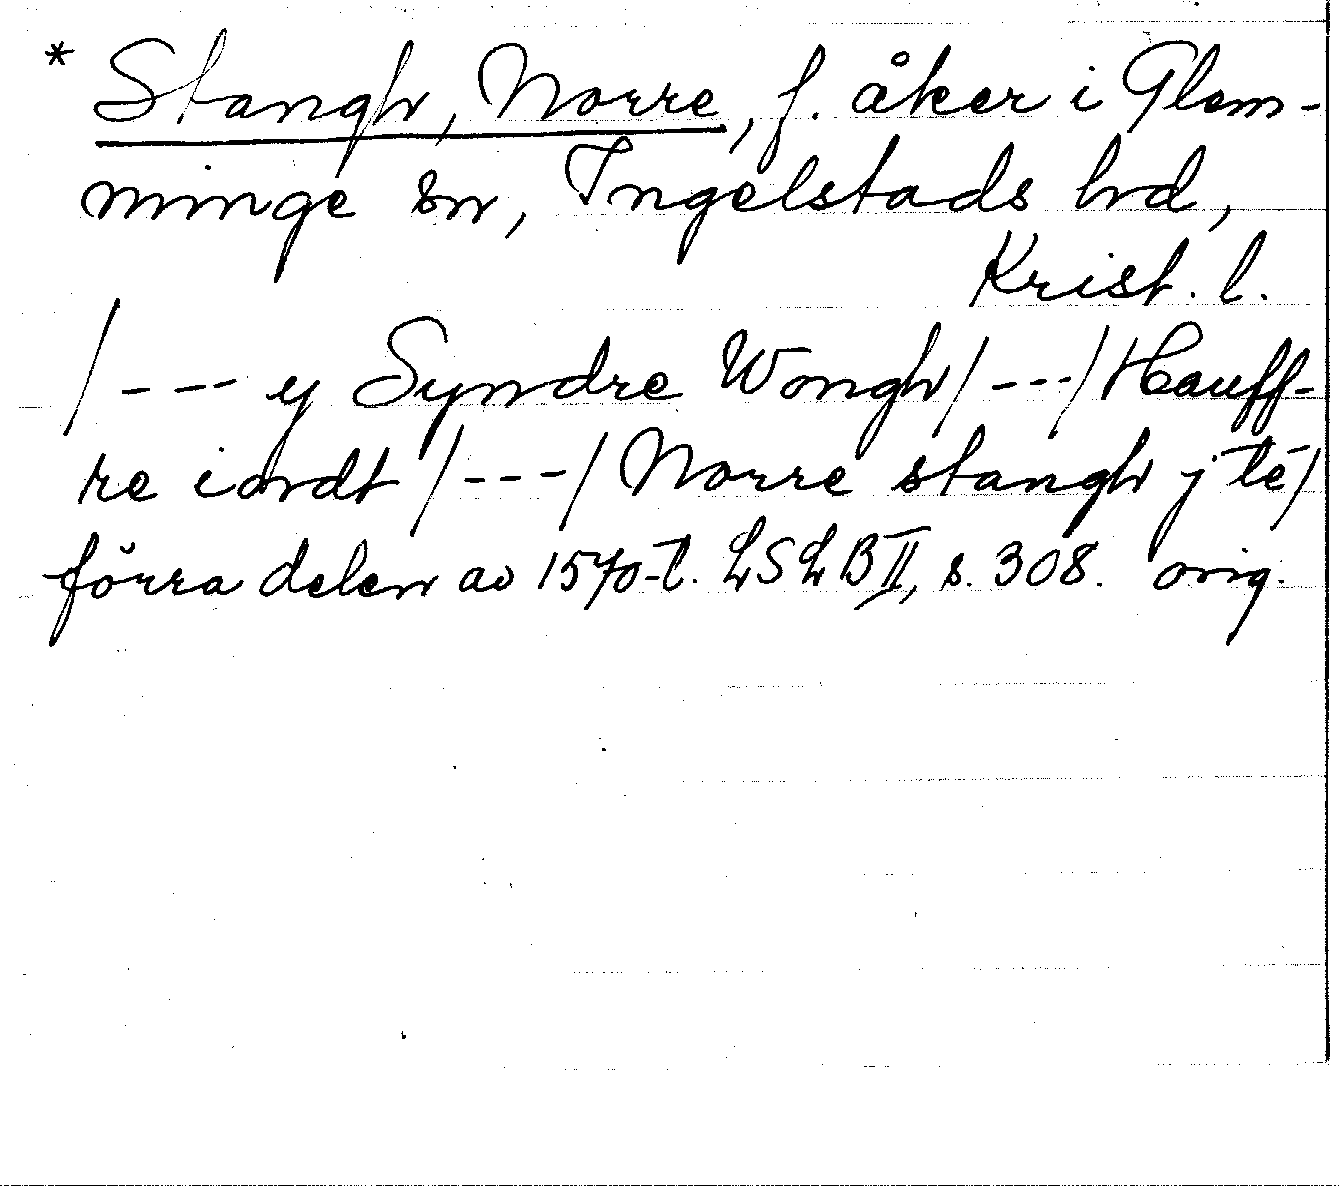 * Stangh, Norre, f. åker i Glem-
minge sn, Ingelstads hrd,
Krist. l.
/--- y Syndre Wongh/---/Hauff-
re iordt/---/Norre stangh j te/
förra delen av 1570-t. LSLB II, s. 308. orig.